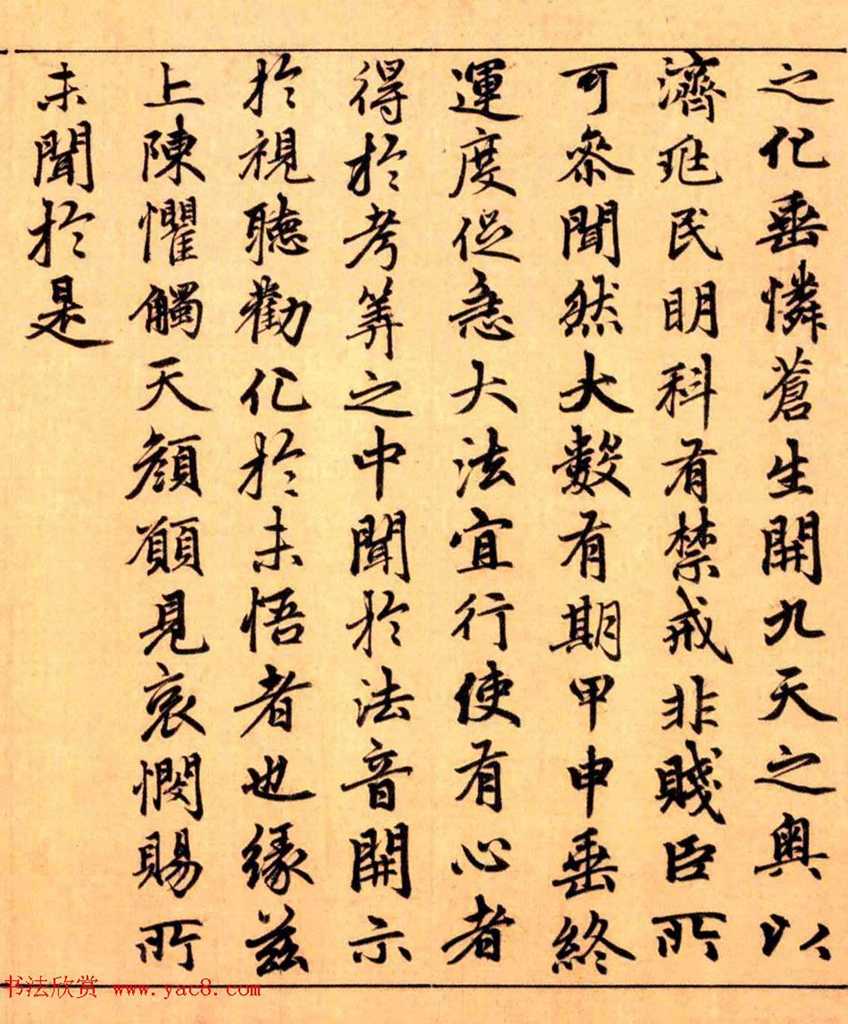 之化垂憐蒼生開九天之奥以
濟䟫民明科有禁戒非賤臣所
可叅聞然大數有期甲申垂終
運度促急大法宜行使有心者
得於考筭之中聞於法音開示
於視聽勸化於未悟者也緣兹
上陳懼觸天顔願見哀憫賜所
未聞於是
书法欣赏 www.yac8.com